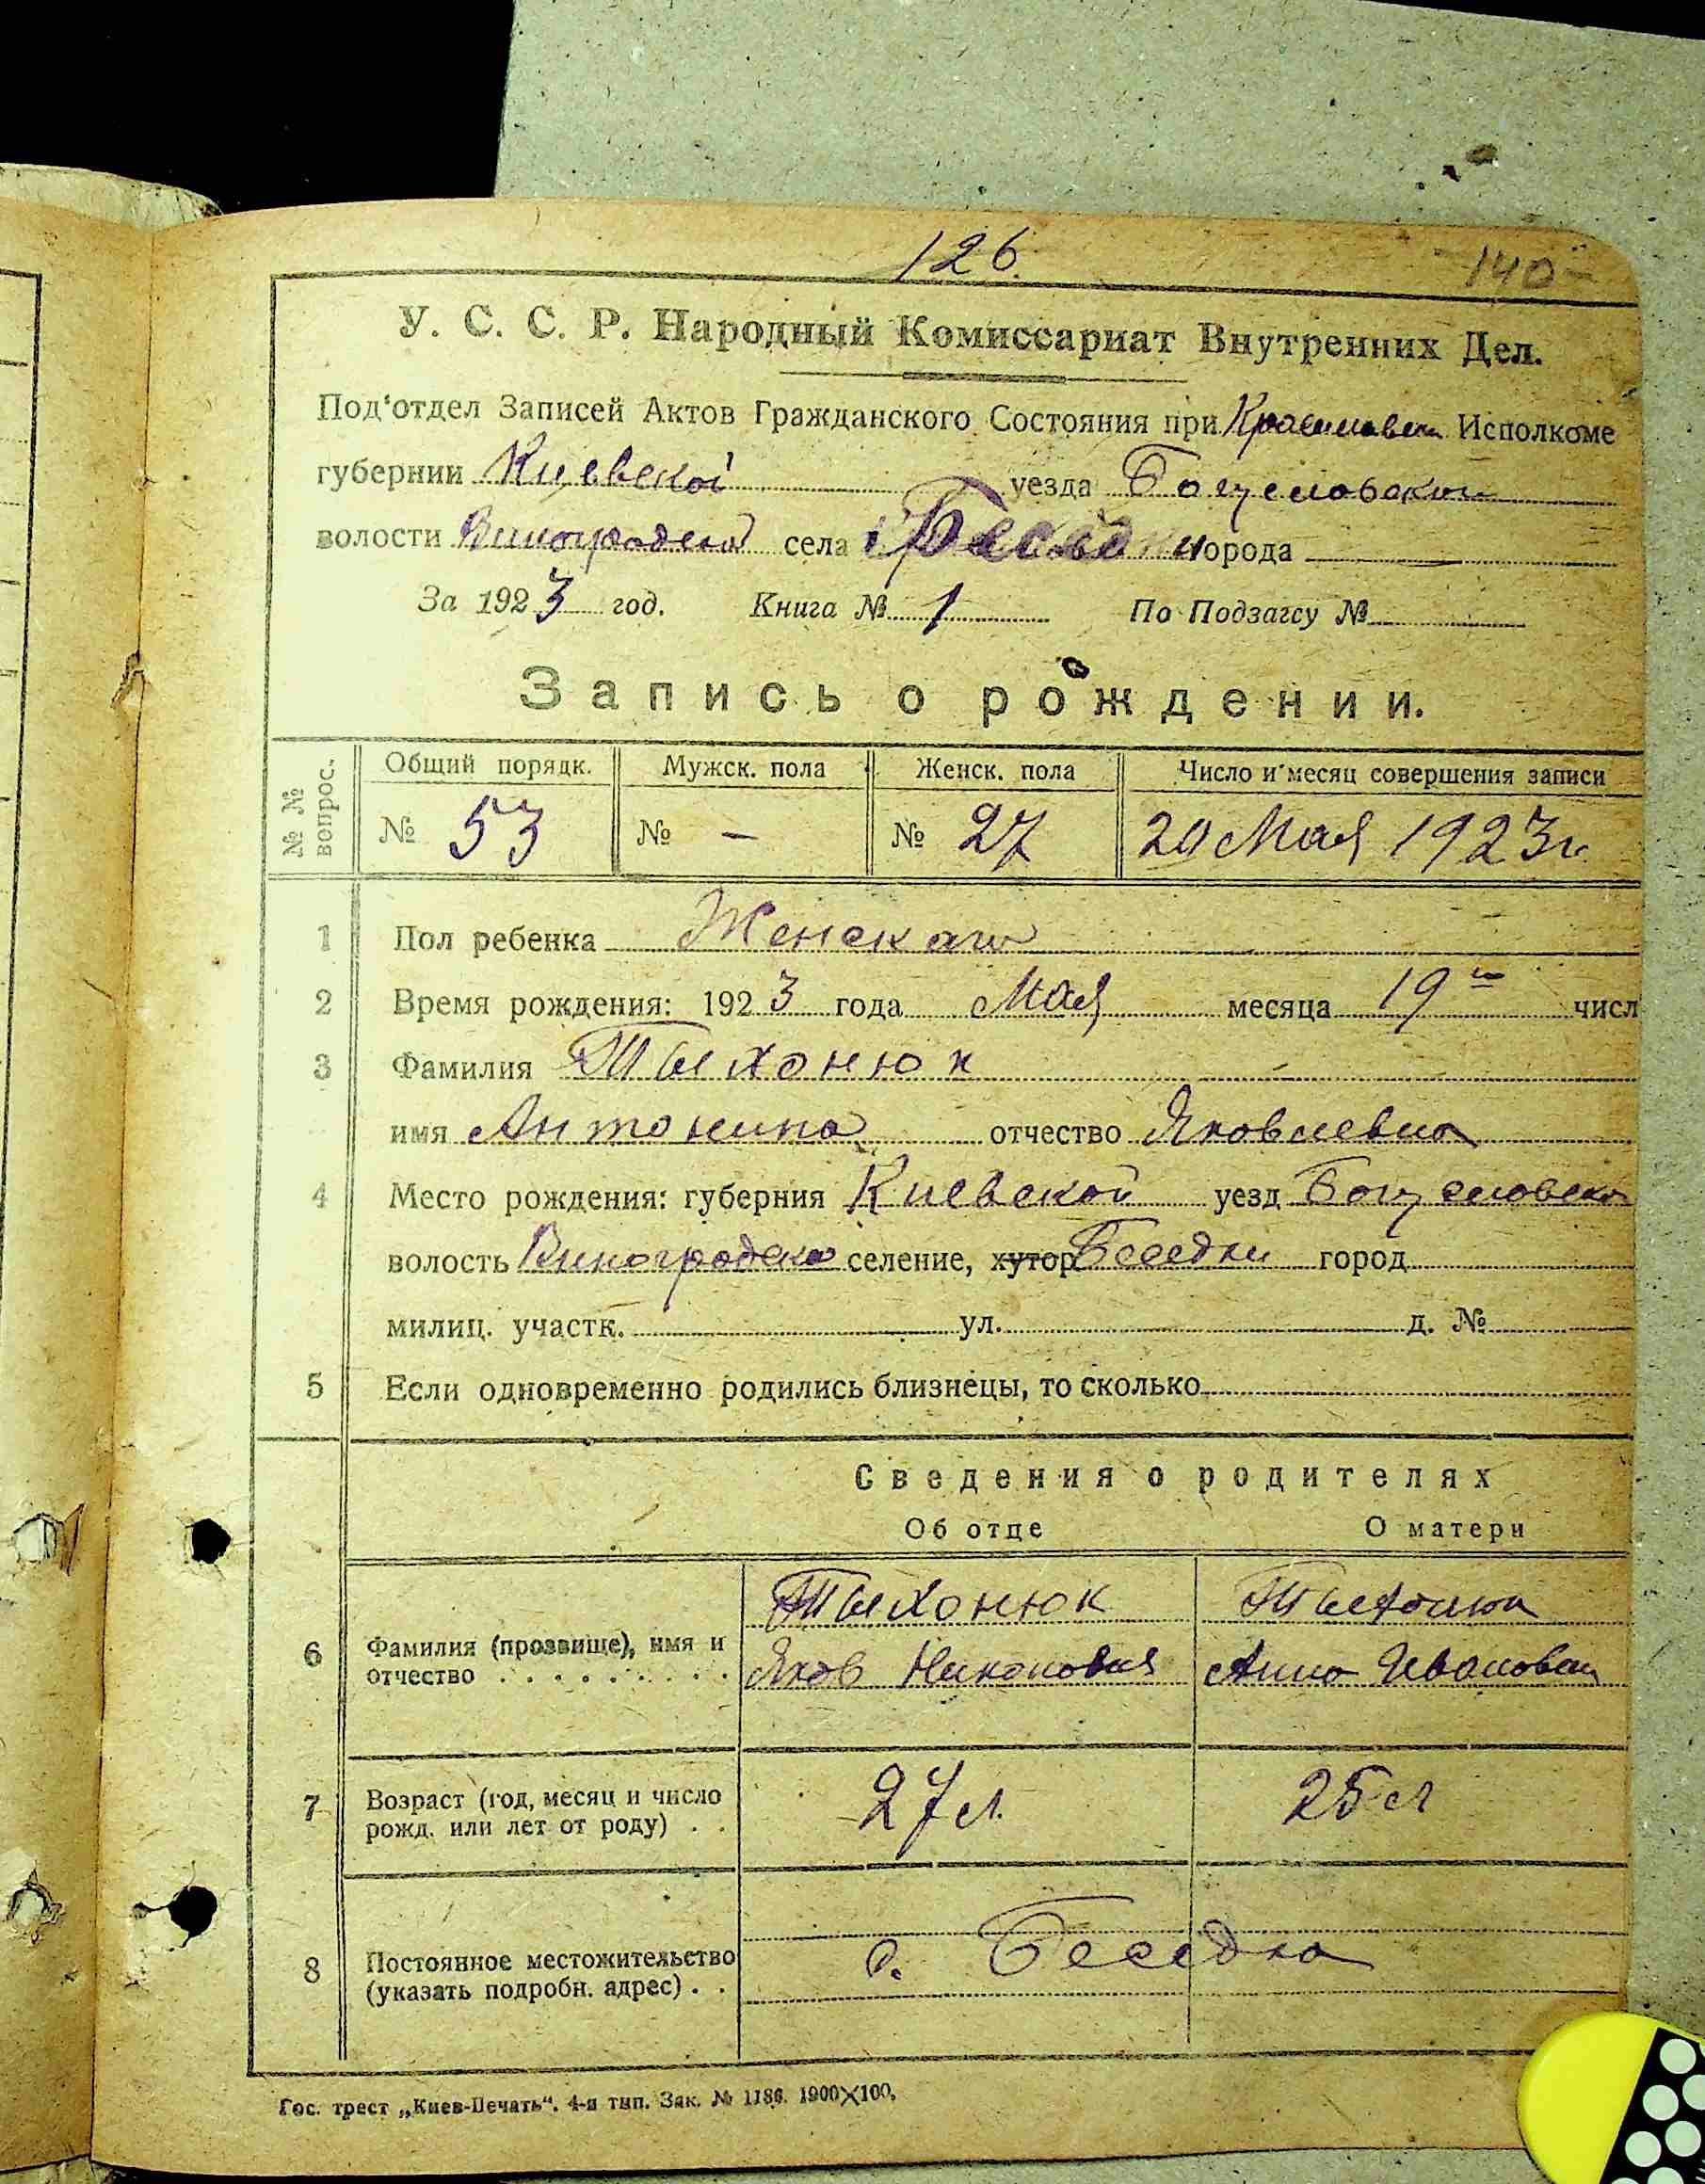 126.
140
У. С. С. Р. Народный Комиссариат Внутренних Дел.
Под'отдел Записей Актов Гражданского Состояния при Исполкоме
губернии Киевской уезда Богуславского
волости Виноградской села Беседки города
За 1923 год. Книга № 1 По Подзагсу №
Запись о рождении.
№ № вопрос. Общий порядк. Мужск. пола Женск. пола Число и месяц совершения записи
№ 53 № – № 27 20 Мая 1923 г.
1 Пол ребенка Женскаго
2 Время рождения: 1923 года Мая месяца 19го числ
3 Фамилия Тыхонюк
имя Антонина отчество Яковлевна
4 Место рождения: губерния Киевской уезд Богуславско
волость Виноградско селение, хутор Беседки город
милиц. участк. ул. д. №
5 Если одновременно родились близнецы, то сколько
Сведения о родителях
Об отце О матери
Тыхонюк Тыхонюк
6 Фамилия (прозвище), имя и отчество Яков Никонович Анна Ивановна
7 Возраст (год, месяц и число рожд. или лет от роду) 27 л. 25 л
8 Постоянное местожительство (указать подробн. адрес) с. Беседка
Гос. трест „Киев-Печать“. 4-я тип. Зак. № 1186. 1900×100.